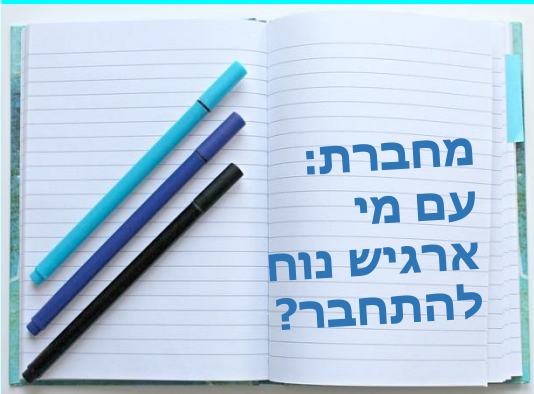 מחברת:
עם מי
ארגיש נוח
להתחבר?